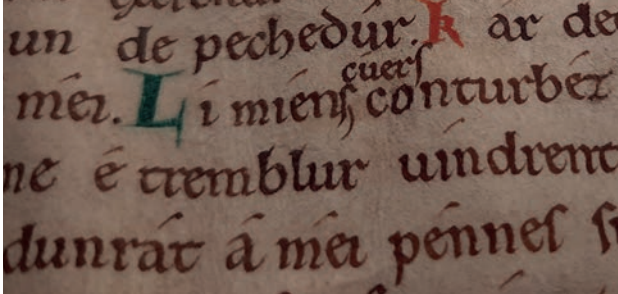 un de pechedúr. k ar de
méi. L i mién cuers conturbez
ne é tremblur uindrent
dunrát á méi pénnes su